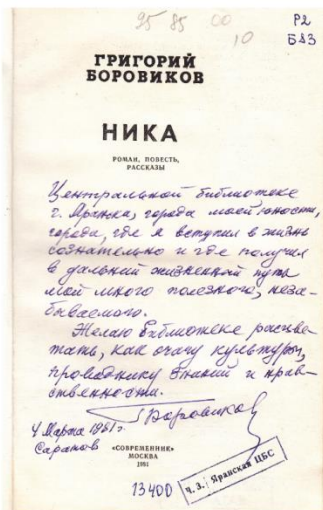 95 85 00
10
Р2
Б83
ГРИГОРИЙ
БОРОВИКОВ
НИКА
РОМАН, ПОВЕСТЬ,
РАССКАЗЫ
Центральной библиотеке
г. Яранска, города моей юности,
города, где я вступил в жизнь
сознательно и где получил
в дальний жизненный путь
мой много полезного, неза-
бываемого.
Желаю библиотеке расцве-
тать, как очагу культуры,
проводнику знаний и нрав-
ственности.
Г Боровиков
4 марта 1981 г.
Саратов
«СОВРЕМЕННИК»
МОСКВА
1981
13400
Ч. З. Яранская ЦБС